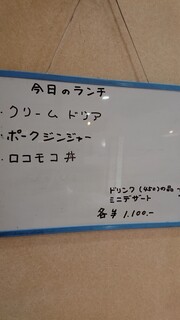 今日のランチ
・クリームドリア
・ポークジンジャー
・ロコモコ丼
ドリンク(450)の品
ミニデザート
各¥1.100.-